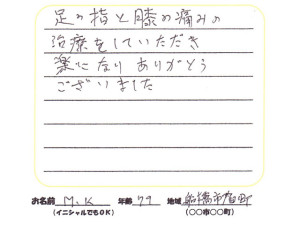 足の指と膝の痛みの
治療をしていただき
楽になりありがとう
ございました
お名前 M.K 年齢 79 地域 船橋市
(イニシャルでもOK) (○○市○○町)